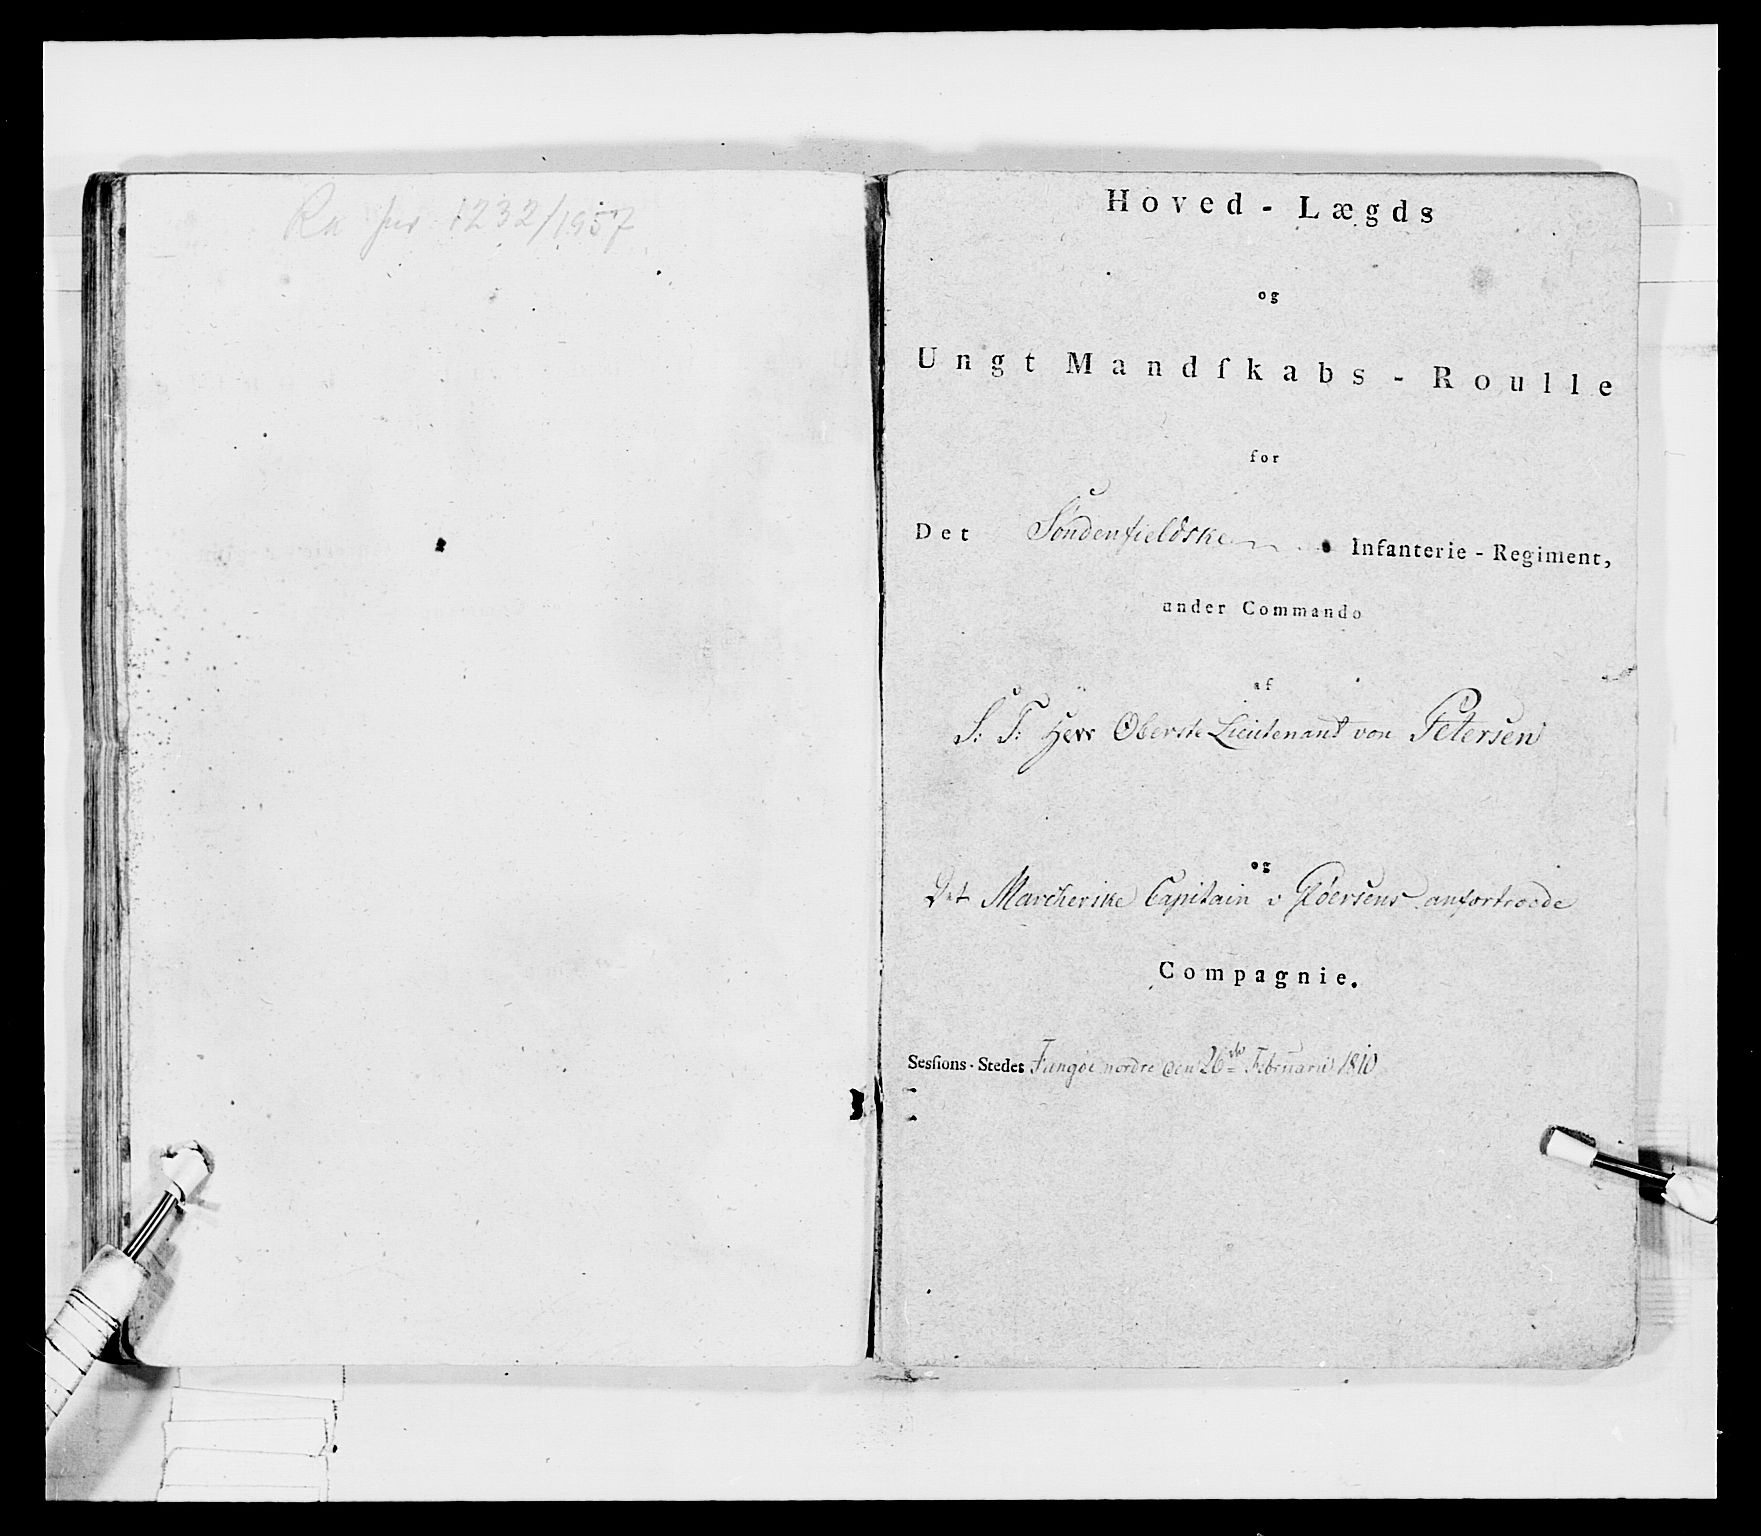 Ra jnr 1232/1957
Hoved-Lægds
og
Ungt Mandſkabs-Roulle
for
Det Söndenfieldske Infanterie-Regiment,
under Commando
af
S: T: Herr Oberste Lieutenant von Petersen
og
Det Marcherske Capitain v Gløersens anfortroede
Compagnie.
Sesſions-Stedet nordre den 26de Februarii 1810